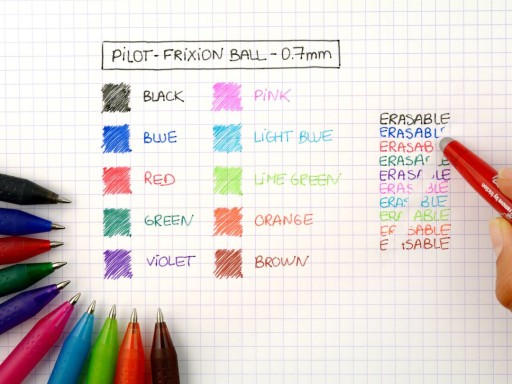 PiLOT - FRiXiON BALL - 0.7mm
BLACK
BLUE
RED
GREEN
ViOLET
PiNK
LiGHT BLUE
LiME GREEN
ORANGE
BROWN
ERASABLE
ERASABL
ERASAB
ERASA
ERAS BLE
ERAS BLE
ERAS BL
ER ABLE
E SABLE
E SABLE